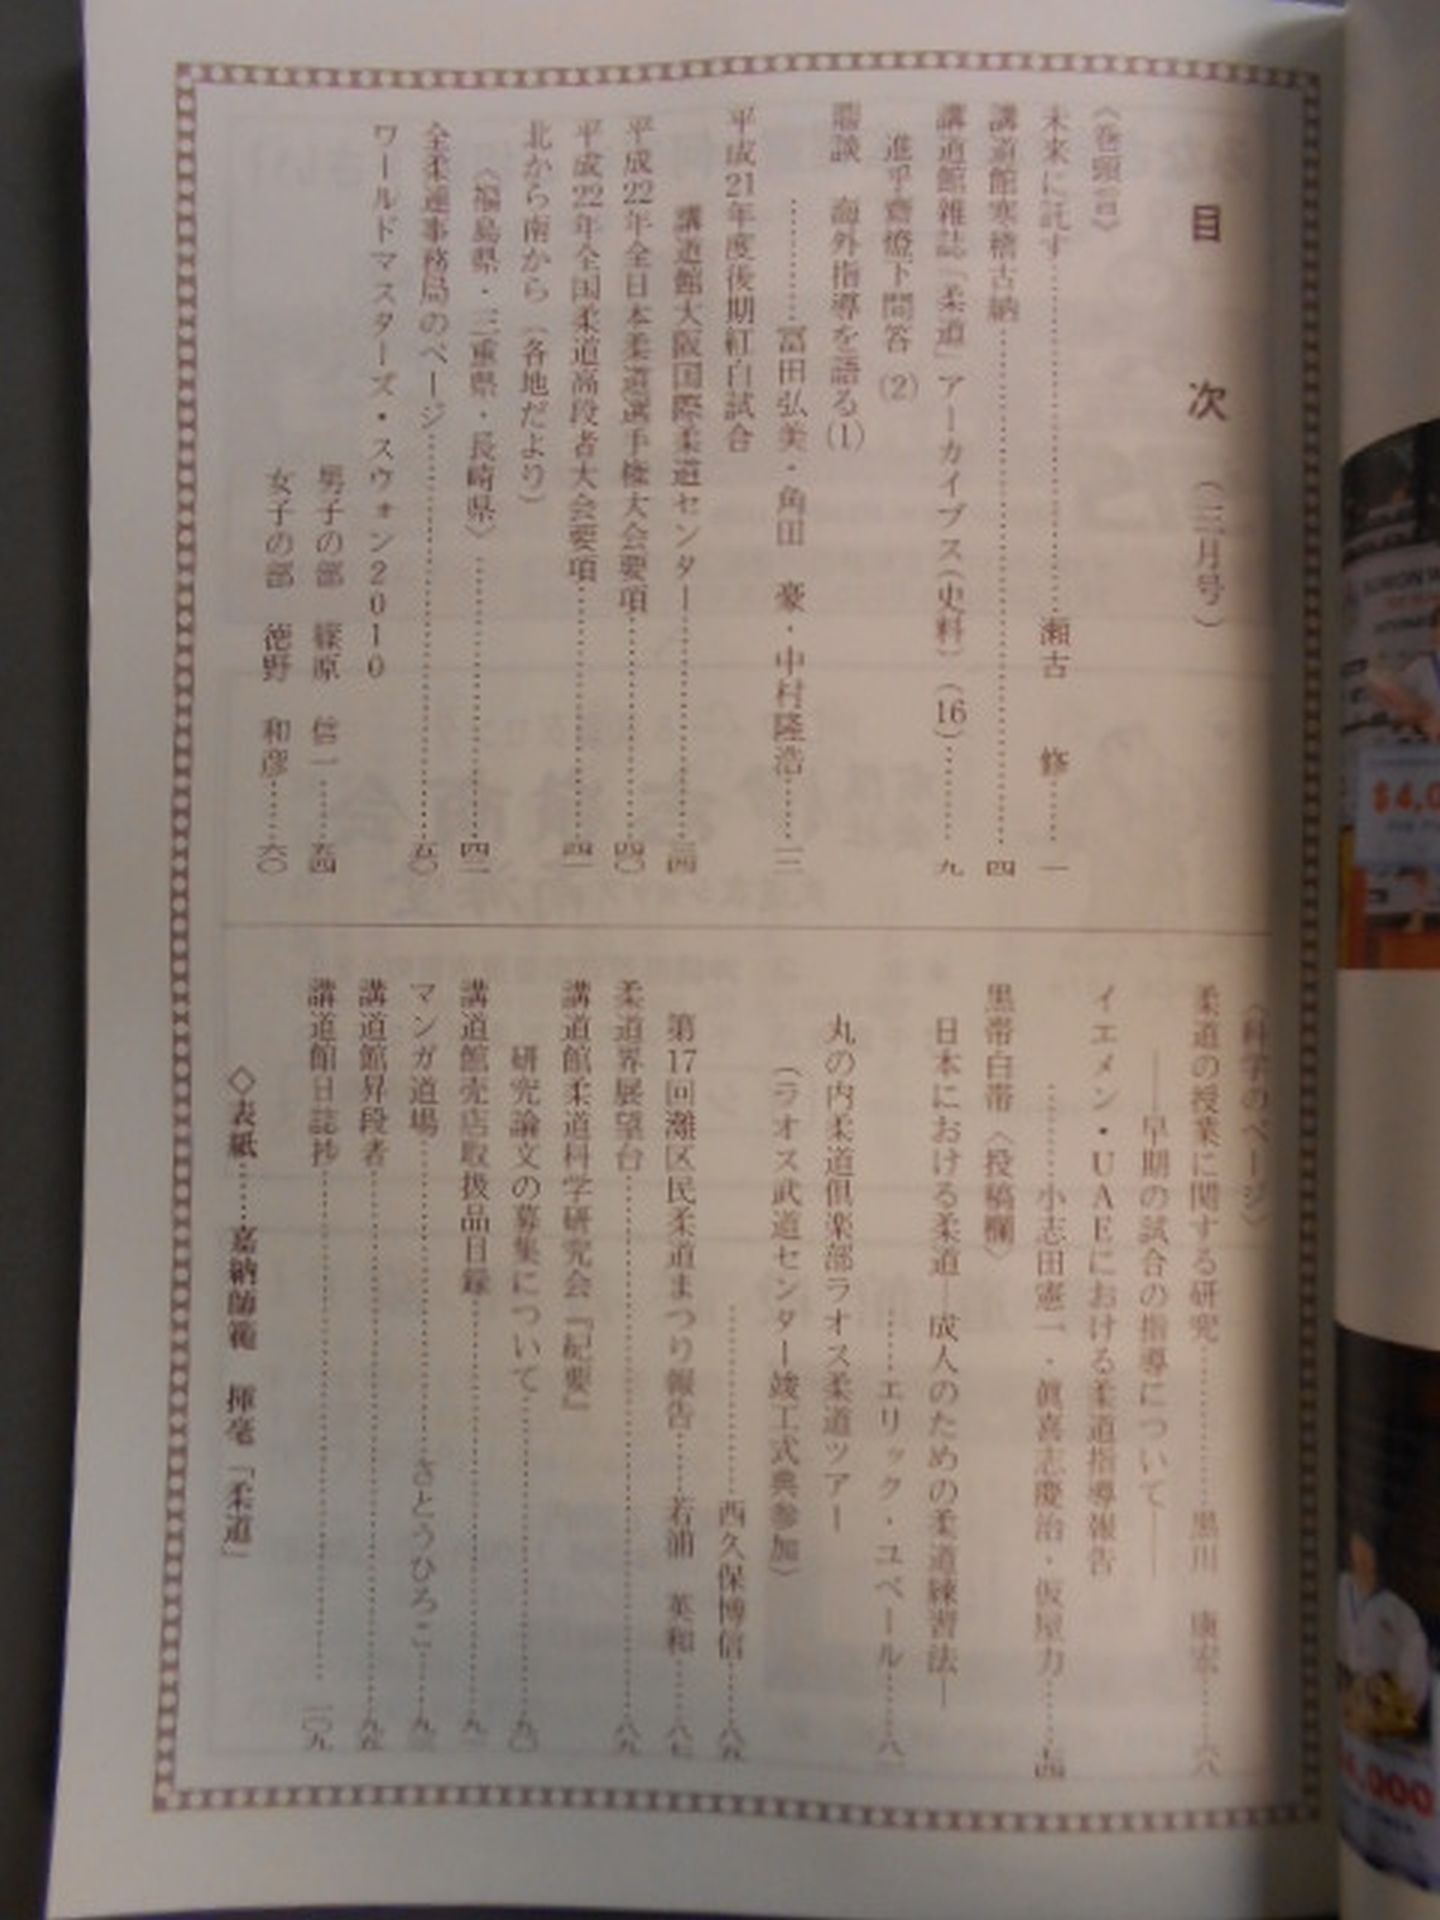 目　次　(三月号)
〈巻頭言〉
未来に託す…………瀬古　修……一
講道館寒稽古納…………四
講道館雑誌「柔道」アーカイブス(史料)(16)……九
進乎齋燈下問答(2)
鼎談　海外指導を語る(1)
…………冨田弘美・角田　豪・中村隆浩……
平成21年度後期紅白試合
講道館大阪国際柔道センター…………三四
平成22年全日本柔道選手権大会要項…………四〇
平成22年全国柔道高段者大会要項…………四一
北から南から(各地だより)
〈福島県・三重県・長崎県〉…………四二
全柔連事務局のページ…………五〇
ワールドマスターズ・スウォン2010
男子の部　篠原　信一……五四
女子の部　徳野　和彦……六〇
〈科学のページ〉
柔道の授業に関する研究…………黒川　康宏……六八
――早期の試合の指導について――
イエメン・UAEにおける柔道指導報告
…………小志田憲一・眞喜志慶治・仮屋力……七四
黒帯白帯〈投稿欄〉
日本における柔道―成人のための柔道練習法―
……エリック・ユベール……
丸の内柔道倶楽部ラオス柔道ツアー
(ラオス武道センター竣工式典参加)
…………西久保博信……八五
第17回灘区民柔道まつり報告……若浦　英和……八七
柔道界展望台…………八九
講道館柔道科学研究会『紀要』
研究論文の募集について…………九〇
講道館売店取扱品目録…………
マンガ道場…………さとうひろこ……
講道館昇段者…………九五
講道館日誌抄…………一〇九
◇表紙……嘉納師範　揮毫「柔道」
$4,0
,000